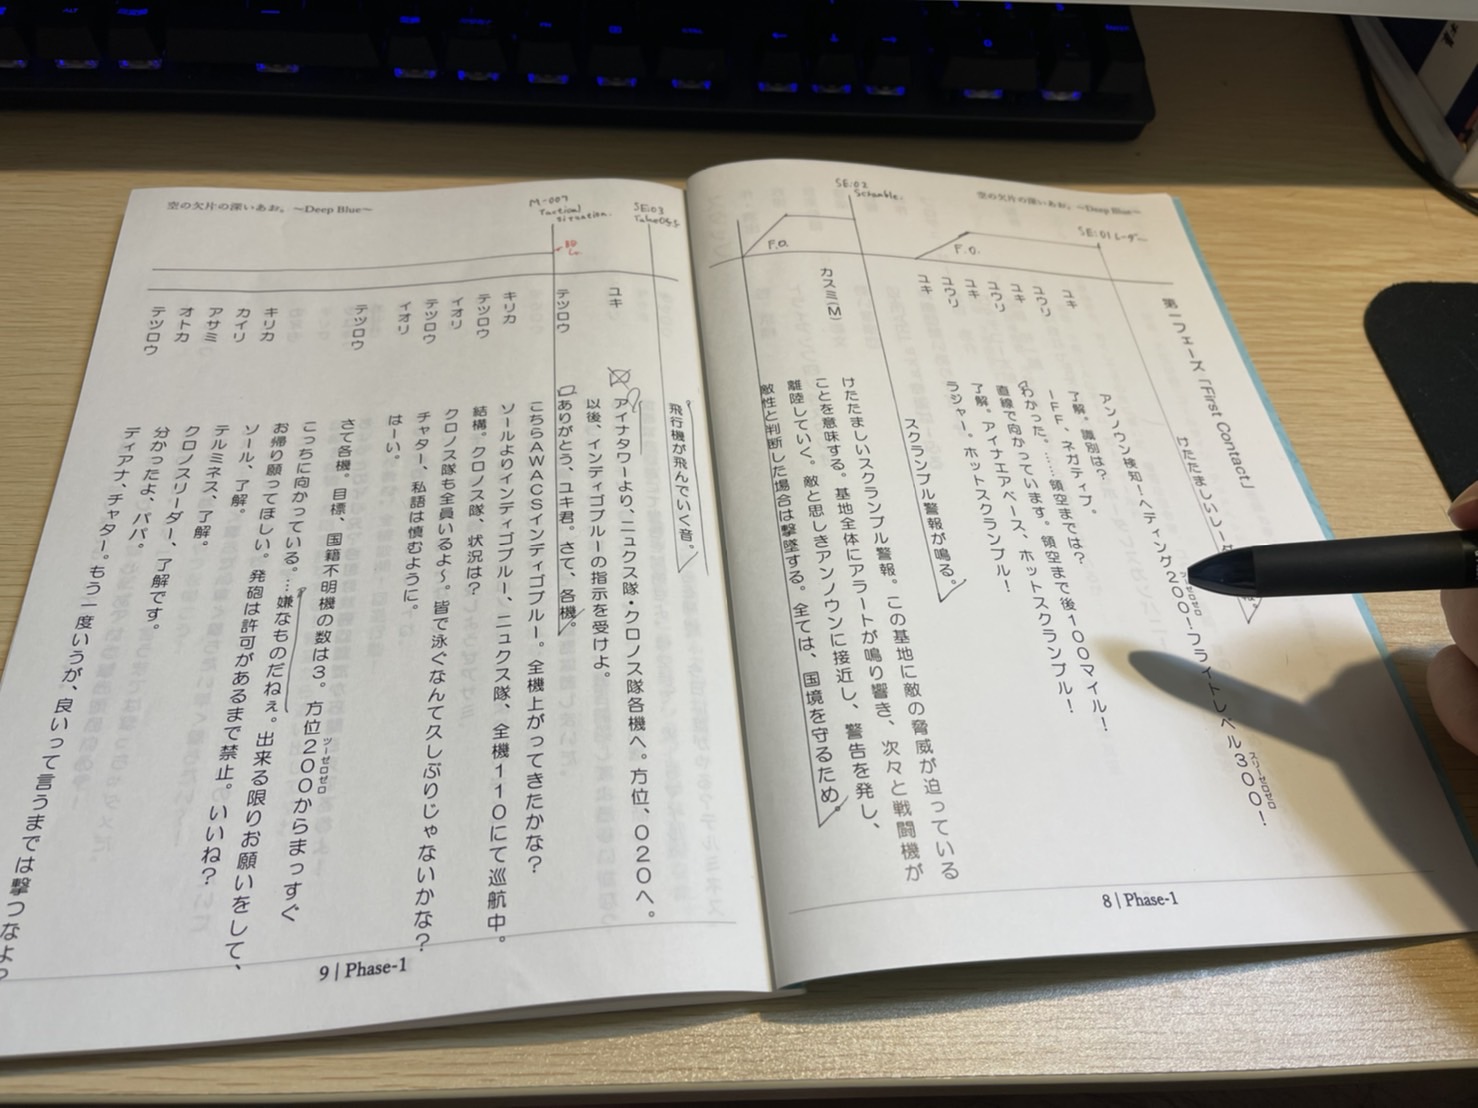 空の欠片の深いあお。〜Deep Blue〜
SE:01 レーダー
F.O.
SE:02
Scramble.
F.O.
第一フェーズ「First Contact」
けたたましいレーダ
アンノウン検知！ヘディング200！フライトレベル300！
ツーゼロゼロ
スリーゼロゼロ
ユキ 了解。識別は？
ユウリ IFF、ネガティブ。
ユキ わかった。……領空までは？
ユウリ 直線で向かっています。領空まで後100マイル！
ユキ 了解。アイナエアベース、ホットスクランブル！
ユウリ ラジャー。ホットスクランブル！
ユキ
スクランブル警報が鳴る。
カスミ(M) けたたましいスクランブル警報。この基地に敵の脅威が迫っている
ことを意味する。基地全体にアラートが鳴り響き、次々と戦闘機が
離陸していく。敵と思しきアンノウンに接近し、警告を発し、
敵性と判断した場合は撃墜する。全ては、国境を守るため。
8 | Phase-1
空の欠片の深いあお。〜Deep Blue〜
SE:03
Takeoff
M-007
Tactical
situation.
飛行機が飛んでいく音。
ユキ アイナタワーより、ニュクス隊・クロノス隊各機へ。方位、020へ。
以後、インディゴブルーの指示を受けよ。
テツロウ ありがとう、ユキ君。さて、各機。
こちらAWACSインディゴブルー。全機上がってきたかな？
キリカ ソールよりインディゴブルー、ニュクス隊、全機110にて巡航中。
テツロウ 結構。クロノス隊、状況は？
イオリ クロノス隊も全員いるよ〜。皆で泳ぐなんて久しぶりじゃないかな？
テツロウ チャター、私語は慎むように。
イオリ はーい。
テツロウ さて各機。目標、国籍不明機の数は3。方位200からまっすぐ
ツーゼロゼロ
こっちに向かっている。…嫌なものだねぇ。出来る限りお願いをして、
お帰り願ってほしい。発砲は許可があるまで禁止。いいね？
キリカ ソール、了解。
カイリ テルミネス、了解。
アサミ クロノスリーダー、了解です。
オトカ 分かったよ、パパ。
テツロウ ディアナ、チャター。もう一度いうが、良いって言うまでは撃つなよ？
9 | Phase-1